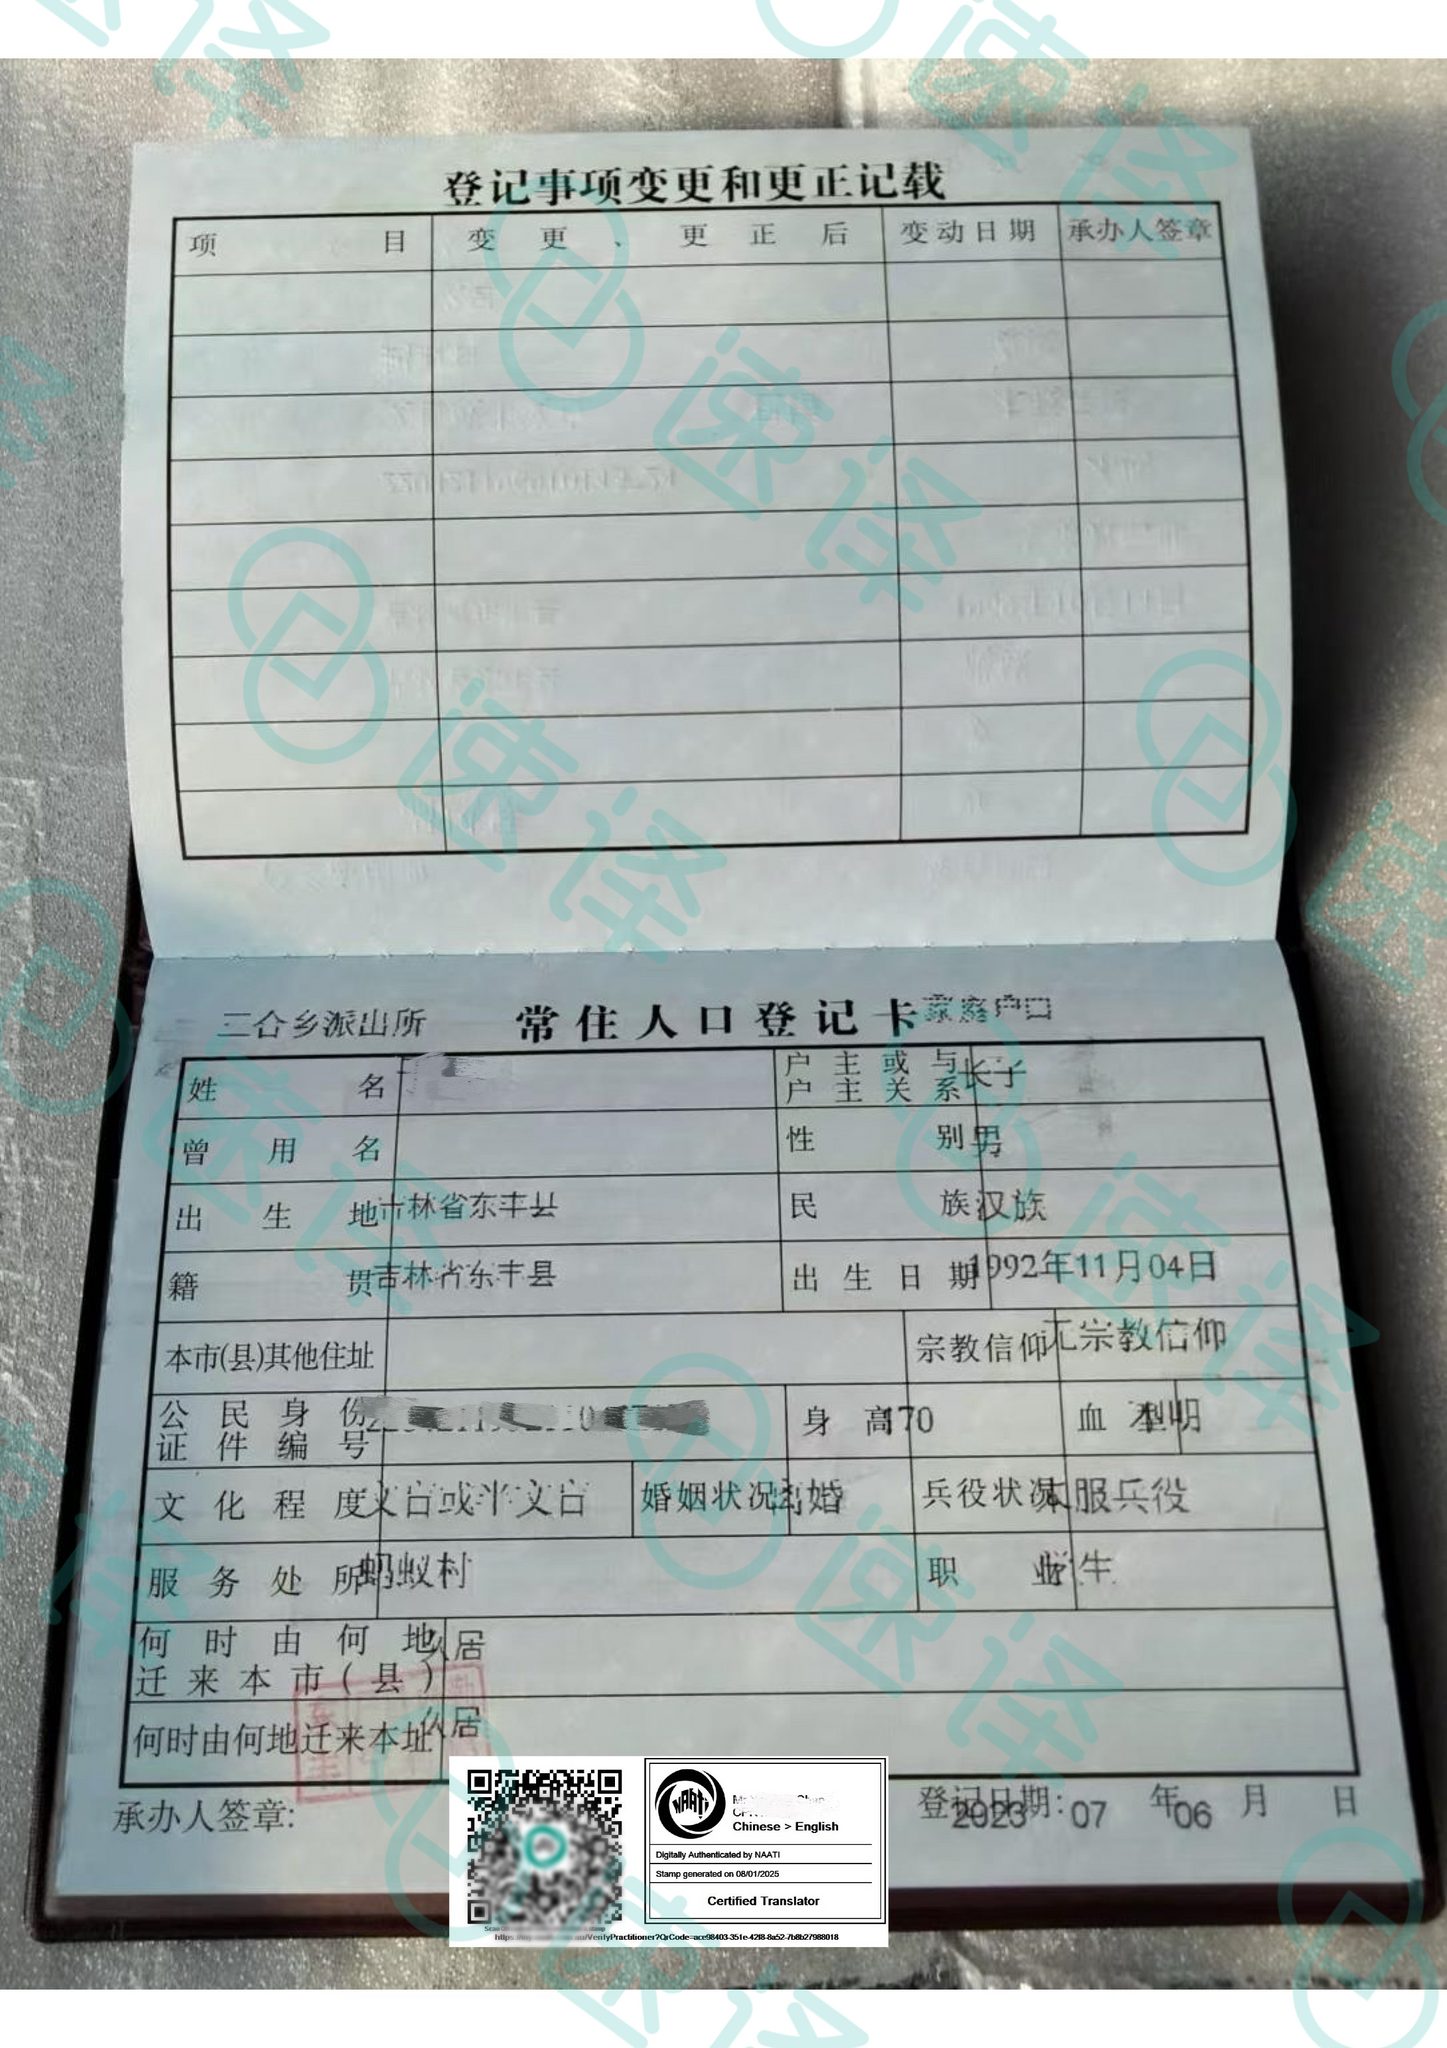 登记事项变更和更正记载
项目 变更、更正后 变动日期 承办人签章
三合乡派出所 常住人口登记卡 家庭户口
姓名 户主或与户主关系 长子
曾用名 性别 男
出生地 吉林省东丰县 民族 汉族
籍贯 吉林省东丰县 出生日期 1992年11月04日
本市(县)其他住址 宗教信仰 无宗教信仰
公民身份证件编号 身高 170 血型 不明
文化程度 文盲或半文盲 婚姻状况 兵役状况 未服兵役
服务处所 蚂蚁村 职业 学生
何时由何地迁来本市(县) 久居
何时由何地迁来本址 久居
承办人签章: 登记日期: 2023年07月06日
NAATI
Chinese > English
Digitally Authenticated by NAATI
Stamp generated on 08/01/2025
Certified Translator
VerifyPractitioner?QrCode=ace98403-351e-42f8-8a52-7b8b27988018
速译